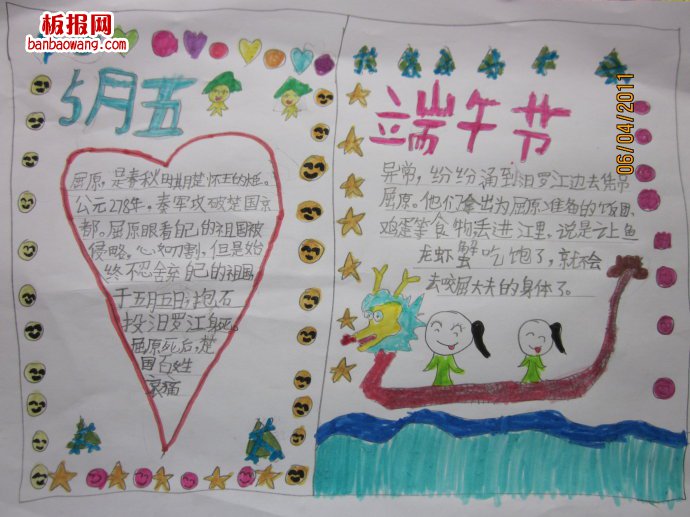 板报网
banbaowang.com
06/04/2011
5月五
屈原，是春秋时期楚怀王的大臣。
公元278年，秦军攻破楚国京
都。屈原眼看自己的祖国被
侵略，心如刀割，但是始
终不忍舍弃自己的祖国，
于五月五日，抱石
投汨罗江身死。
屈原死后，楚
国百姓
哀痛
端午节
异常，纷纷涌到汨罗江边去凭吊
屈原。他们拿出为屈原准备的饭团、
鸡蛋等食物丢进江里，说是让鱼
龙虾蟹吃饱了，就不会
去咬屈大夫的身体了。